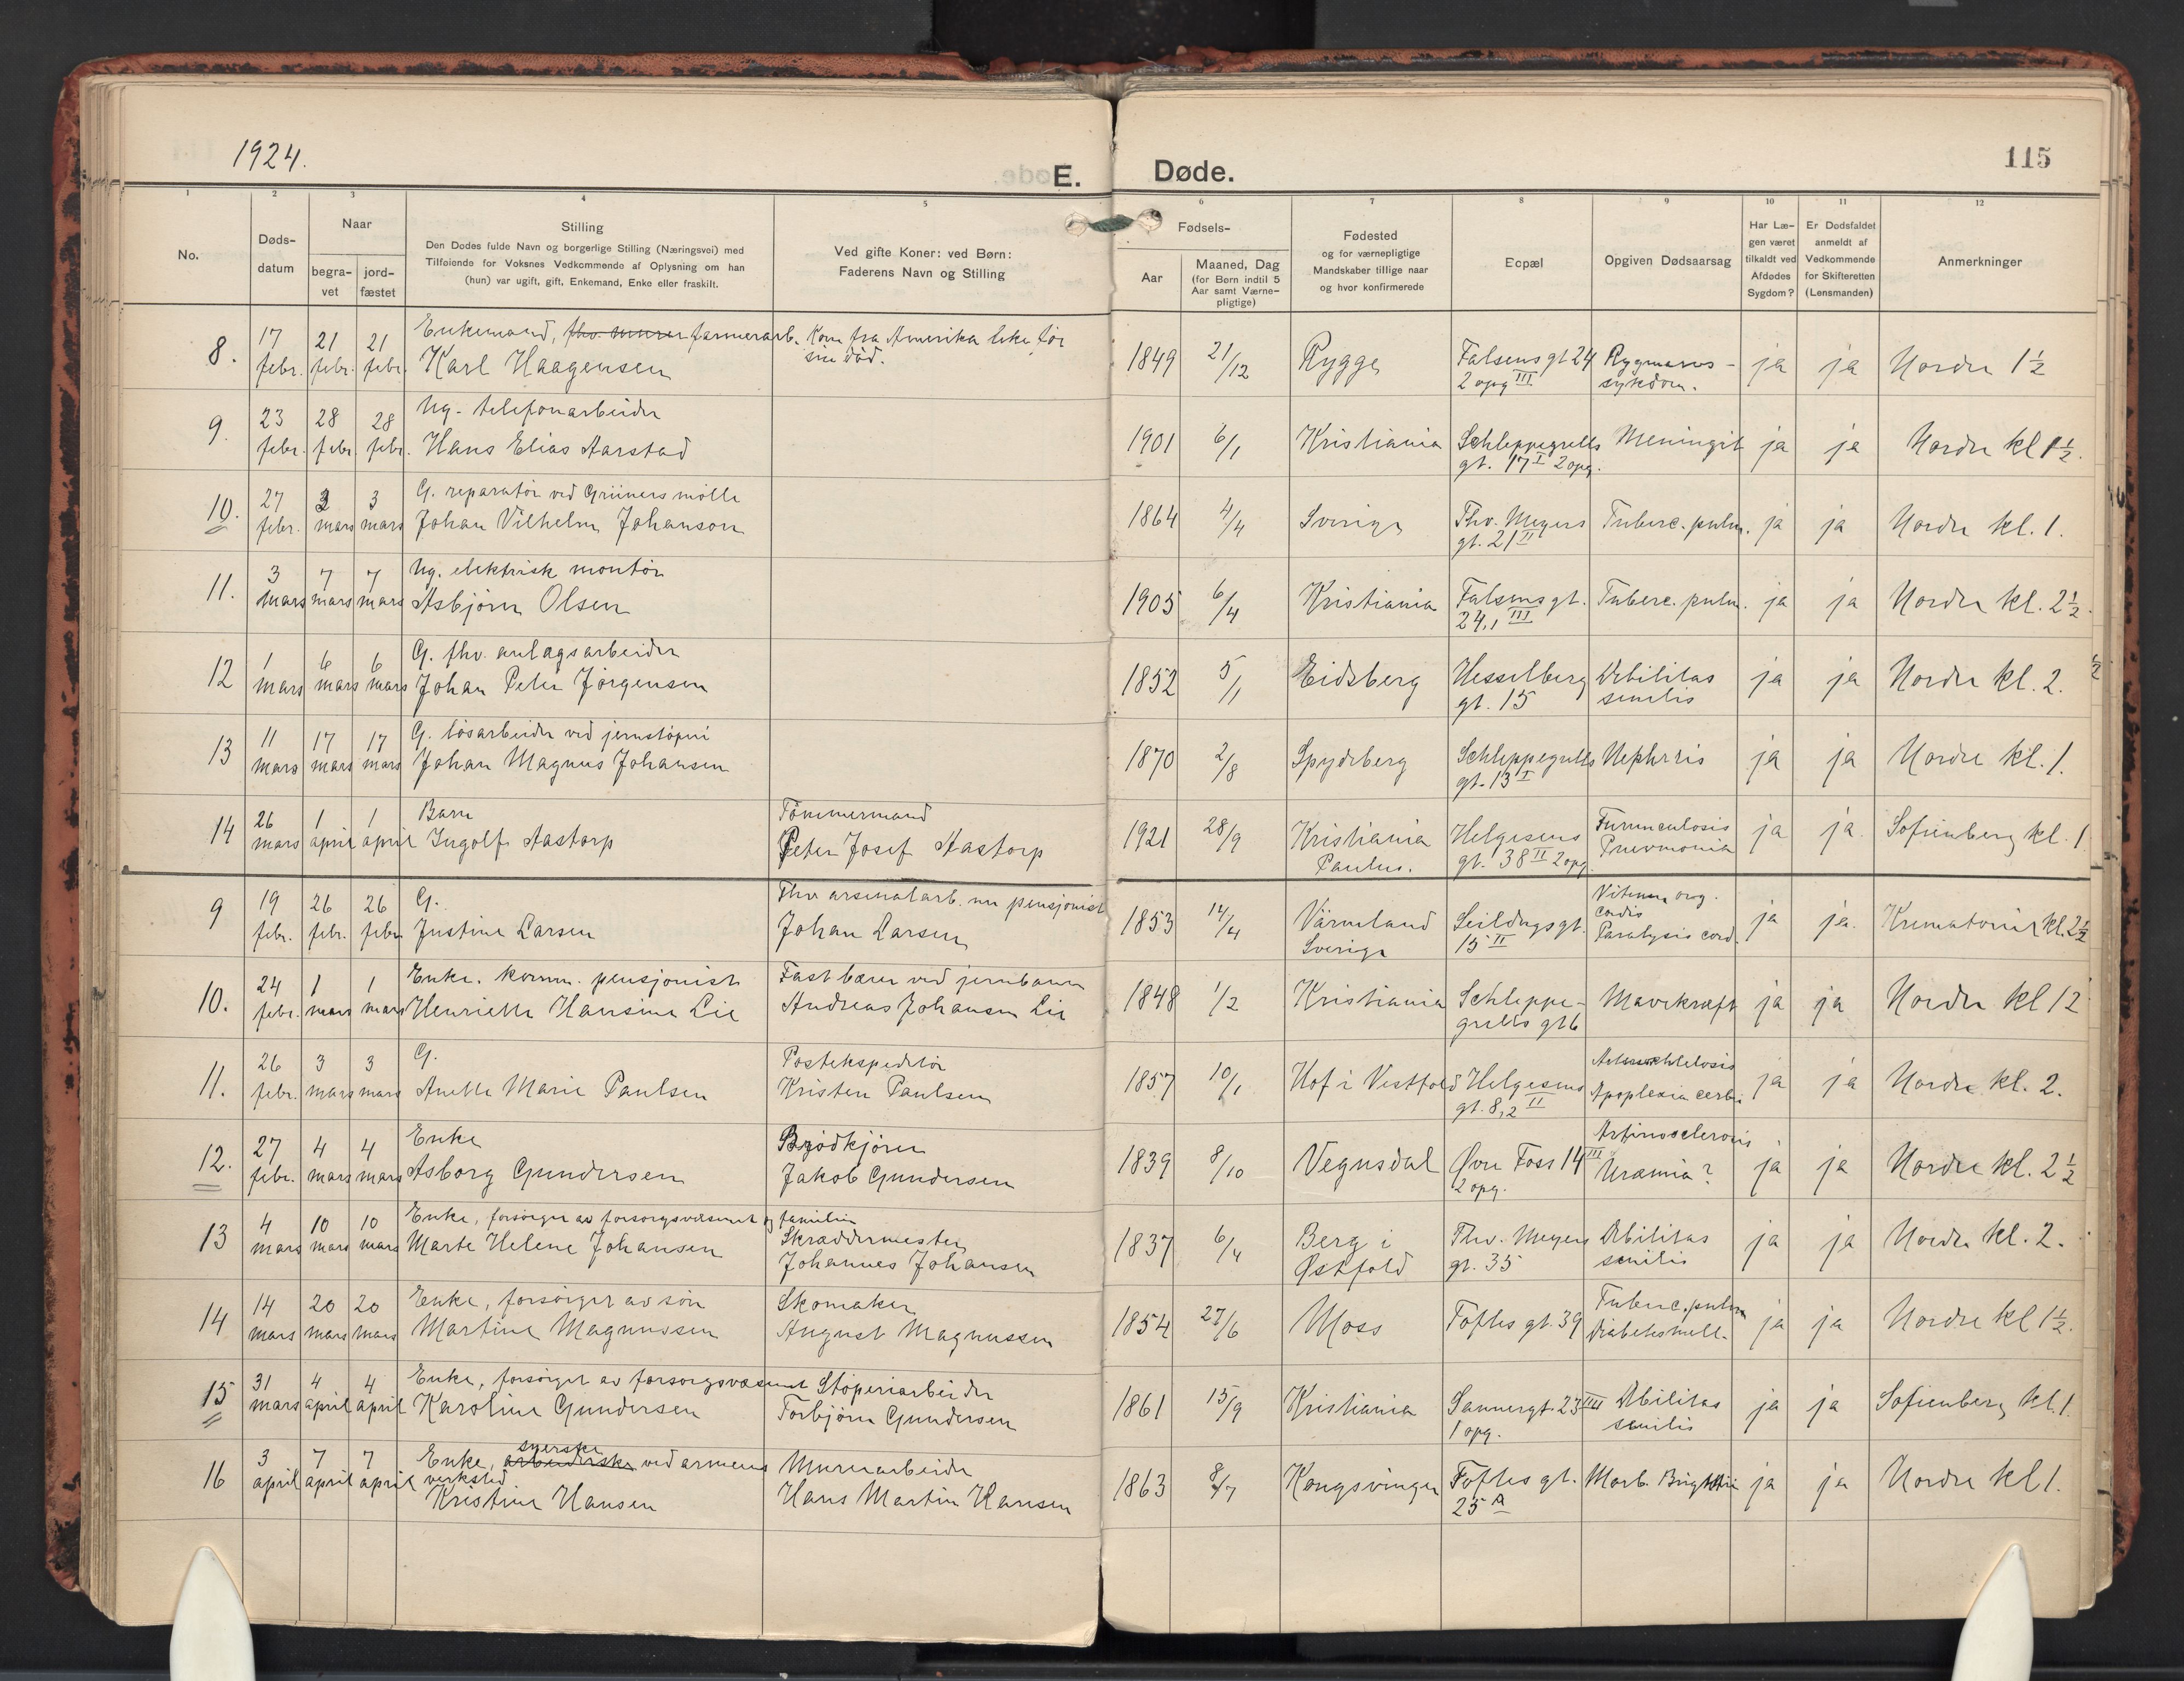 1924.
E. Døde.
115
1 2 3 4 5 6 7 8 9 10 11 12
No.
Døds-
datum
Naar
begra-
vet
jord-
fæstet
Stilling
Den Dødes fulde Navn og borgerlige Stilling (Næringsvei) med
Tilføiende for Voksnes Vedkommende af Oplysning om han
(hun) var ugift, gift, Enkemand, Enke eller fraskilt.
Ved gifte Koner: ved Børn:
Faderens Navn og Stilling
Fødsels-
Aar
Maaned, Dag
(for Børn indtil 5
Aar samt Værne-
pligtige)
Fødested
og for værnepligtige
Mandskaber tillige naar
og hvor konfirmerede
Bopæl
Opgiven Dødsaarsag
Har Læ-
gen været
tilkaldt ved
Afdødes
Sygdom?
Er Dødsfaldet
anmeldt af
Vedkommende
for Skifteretten
(Lensmanden)
Anmerkninger
8. 17 febr. 21 febr. 21 febr. Enkemand, fhv. murer farmerarb. Kom fra Amerika like før
sin død.
Karl Haagensen
1849 21/12 Rygge Falsens gt 24
2 opg III Rygmarvs-
sykdom. ja ja Nordre 1½
9. 23 febr. 28 febr. 28 febr. Ug. telefonarbeider
Hans Elias Aarstad
1901 6/1 Kristiania Schleppegrells
gt. 17 I 2 opg. Meningit ja ja Nordre kl 1½.
10. 27 febr. 3 mars 3 mars G. reparatør ved Grüners mølle
Johan Vilhelm Johanson
1864 4/4 Sverige Thv. Meyers
gt. 21 II Tuberc. pulm. ja ja Nordre kl. 1.
11. 3 mars 7 mars 7 mars Ug. elektrisk montør
Asbjørn Olsen
1905 6/4 Kristiania Falsens gt.
24,1 III Tuberc. pulm. ja ja Nordre kl. 2½.
12 1 mars 6 mars 6 mars G. fhv. anlægsarbeider
Johan Peter Jørgensen
1852 5/1 Eidsberg Hesselberg
gt. 15 Debilitas
senilis ja ja Nordre kl. 2.
13 11 mars 17 mars 17 mars G. løsarbeider ved jernstøperi
Johan Magnus Johansen
1870 2/8 Spydeberg Schleppegrells
gt. 13 I Nephritis ja ja Nordre kl. 1.
14 26 mars 1 april 1 april Barn
Ingolf Aastorp
Tømmermand
Peter Josef Aastorp
1921 28/9 Kristiania
Paulus. Helgesens
gt. 38 II 2 opg. Furunculosis
Pneumonia ja ja. Sofienberg kl. 1
9 19 febr. 26 febr. 26 febr. G.
Justine Larsen
Fhv arsenalarb. nu pensjonist
Johan Larsen
1853 14/4 Värmland
Sverige Seildugsgt.
15 II Vitium org.
cordis
Paralysis cord. ja ja. Krematoriet kl. 2½
10. 24 febr. 1 mars 1 mars Enke. komm. pensjonist
Henriette Hansine Lie
Fast bærer ved jernbanen
Andreas Johansen Lie
1848 1/2 Kristiania Schleppe-
grells gt 6 Mavekræft ja ja Nordre kl 12
11. 26 febr. 3 mars 3 mars G.
Anette Marie Paulsen
Postekspeditør
Kristen Paulsen
1857 10/1 Hof i Vestfold Helgesens
gt. 8,2 II
Apoplexia cerbri ja ja Nordre kl. 2.
12. 27 febr. 4 mars 4 mars Enke
Asborg Gundersen
Brødkjører
Jakob Gundersen
1839 8/10 Vegusdal Øvre Foss 14 III
2 opg. Arteriosclerosis
Uræmia? ja ja Nordre kl. 2½
13 4 mars 10 mars 10 mars Enke, forsørget av forsorgsvæsenet og familie
Marte Helene Johansen
Skræddermester
Johannes Johansen
1837 6/4 Berg i
Østfold Thv. Meyers
gt. 35 Debilitas
senilis ja ja Nordre kl. 2.
14 14 mars 20 mars 20 mars Enke, forsørget av søn
Martine Magnussen
Skomaker
August Magnussen
1854 27/6 Moss Toftes gt. 39 Tuberc. pulm
Diabetes mell. ja ja Nordre kl 1½.
15 31 mars 4 april 4 april Enke, forsørget av forsorgsvæsenet
Karoline Gundersen
Støperiarbeider
Torbjørn Gundersen
1861 15/9 Kristiania Sannergt. 23 III
1 opg. Debilitas
senilis ja ja Sofienberg kl. 1.
16 3 april 7 april 7 april Enke, arbeiderske syerske ved armeens
verksted
Kristine Hansen
Murerarbeider
Hans Martin Hansen
1863 8/7 Kongsvinger Toftes gt.
25 A Morb. Brightii ja ja Nordre kl 1.